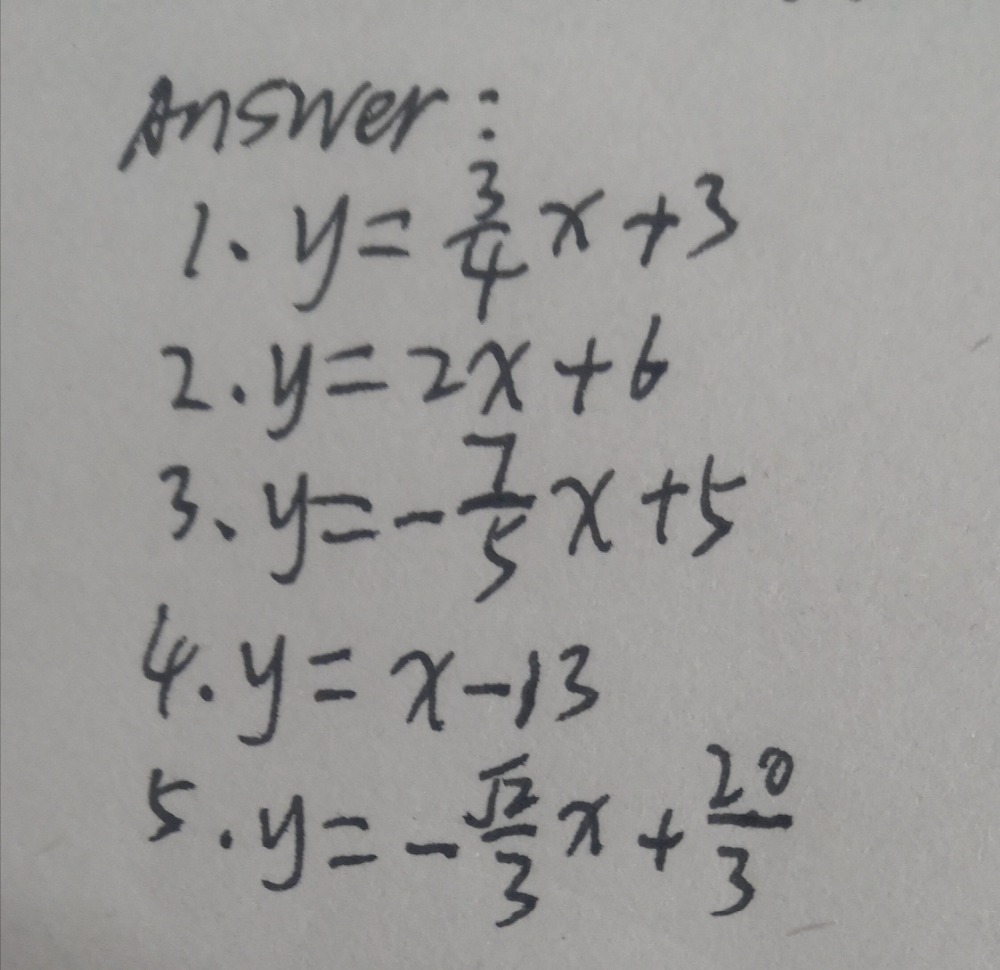 Answer:
1. y = 3/4 x + 3
2. y = 2x + 6
3. y = - 7/5 x + 5
4. y = x - 13
5. y = - √2/3 x + 20/3